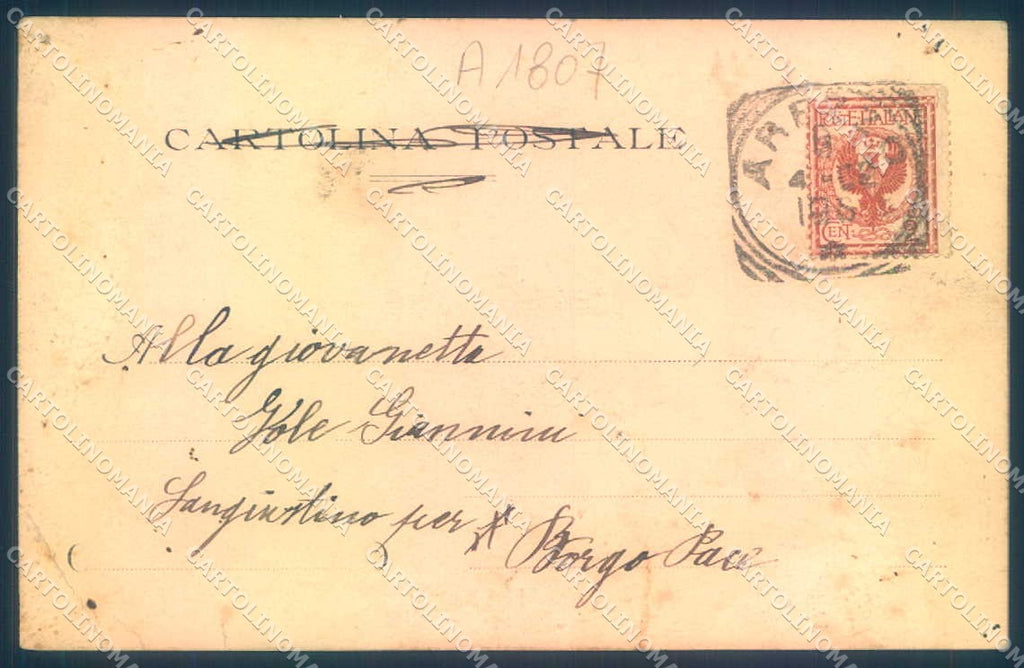 A 1807
CARTOLINA POSTALE
AREZZO
POSTE ITALIANE
CEN.
Alla giovanetta
Iole Giannini
Sangiustino per
Borgo Pace
( )
CARTOLINOMANIA